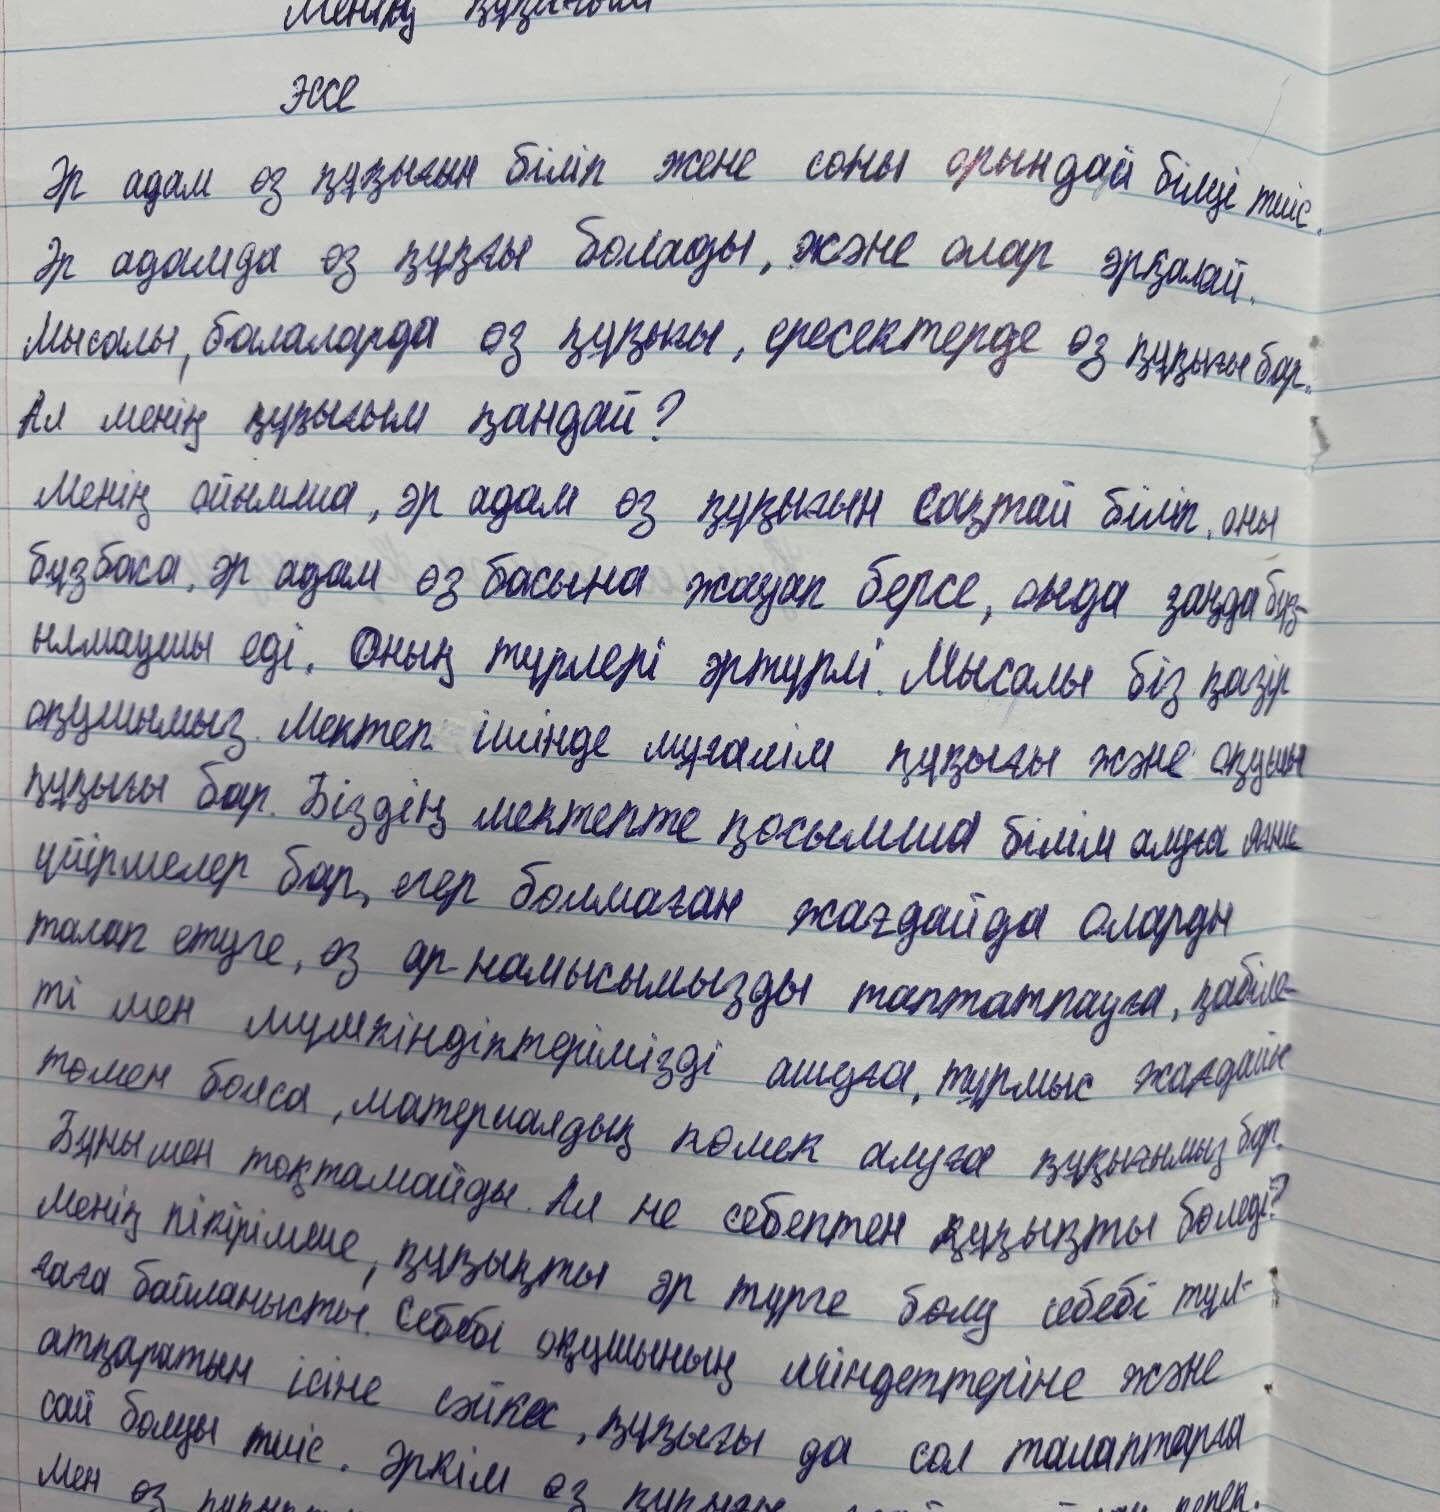 Менің құқығым
Эссе
Әр адам өз құқығын біліп жене соны орындай білуі тиіс.
Әр адамда өз құқғы болады, және олар әрқалай.
Мысалы, балаларда өз құқығы, ересектерде өз құқығы бар.
Ал менің құқығым қандай?
Менің ойымша, әр адам өз құқығын сақтай біліп, оны
бұзбаса, әр адам өз басына жауап берсе, онда заңда бұз-
ылмаушы еді. Оның түрлері әртүрлі. Мысалы біз қазір
оқушымыз. Мектеп ішінде мұғалім құқығы және оқушы
құқығы бар. Біздің мектепте қосымша білім алуға яғни
үйірмелер бар, егер болмаған жағдайда оларды
талап етуге, өз ар-намысымызды таптатпауға, қабіле-
ті мен мүмкіндіктерімізді ашуға, тұрмыс жағдайы
төмен болса, материалдық көмек алуға құқығымыз бар.
Бұнымен тоқтамайды. Ал не себептен құқықты бөледі?
Менің пікірімше, құқықты әр түрге бөлу себебі тұл-
ғаға байланысты. Себебі оқушының міндеттеріне және
атқаратын ісіне сәйкес, құқығы да сол талаптарға
сай болуы тиіс. Әркім өз құқығын керек.
Мен өз